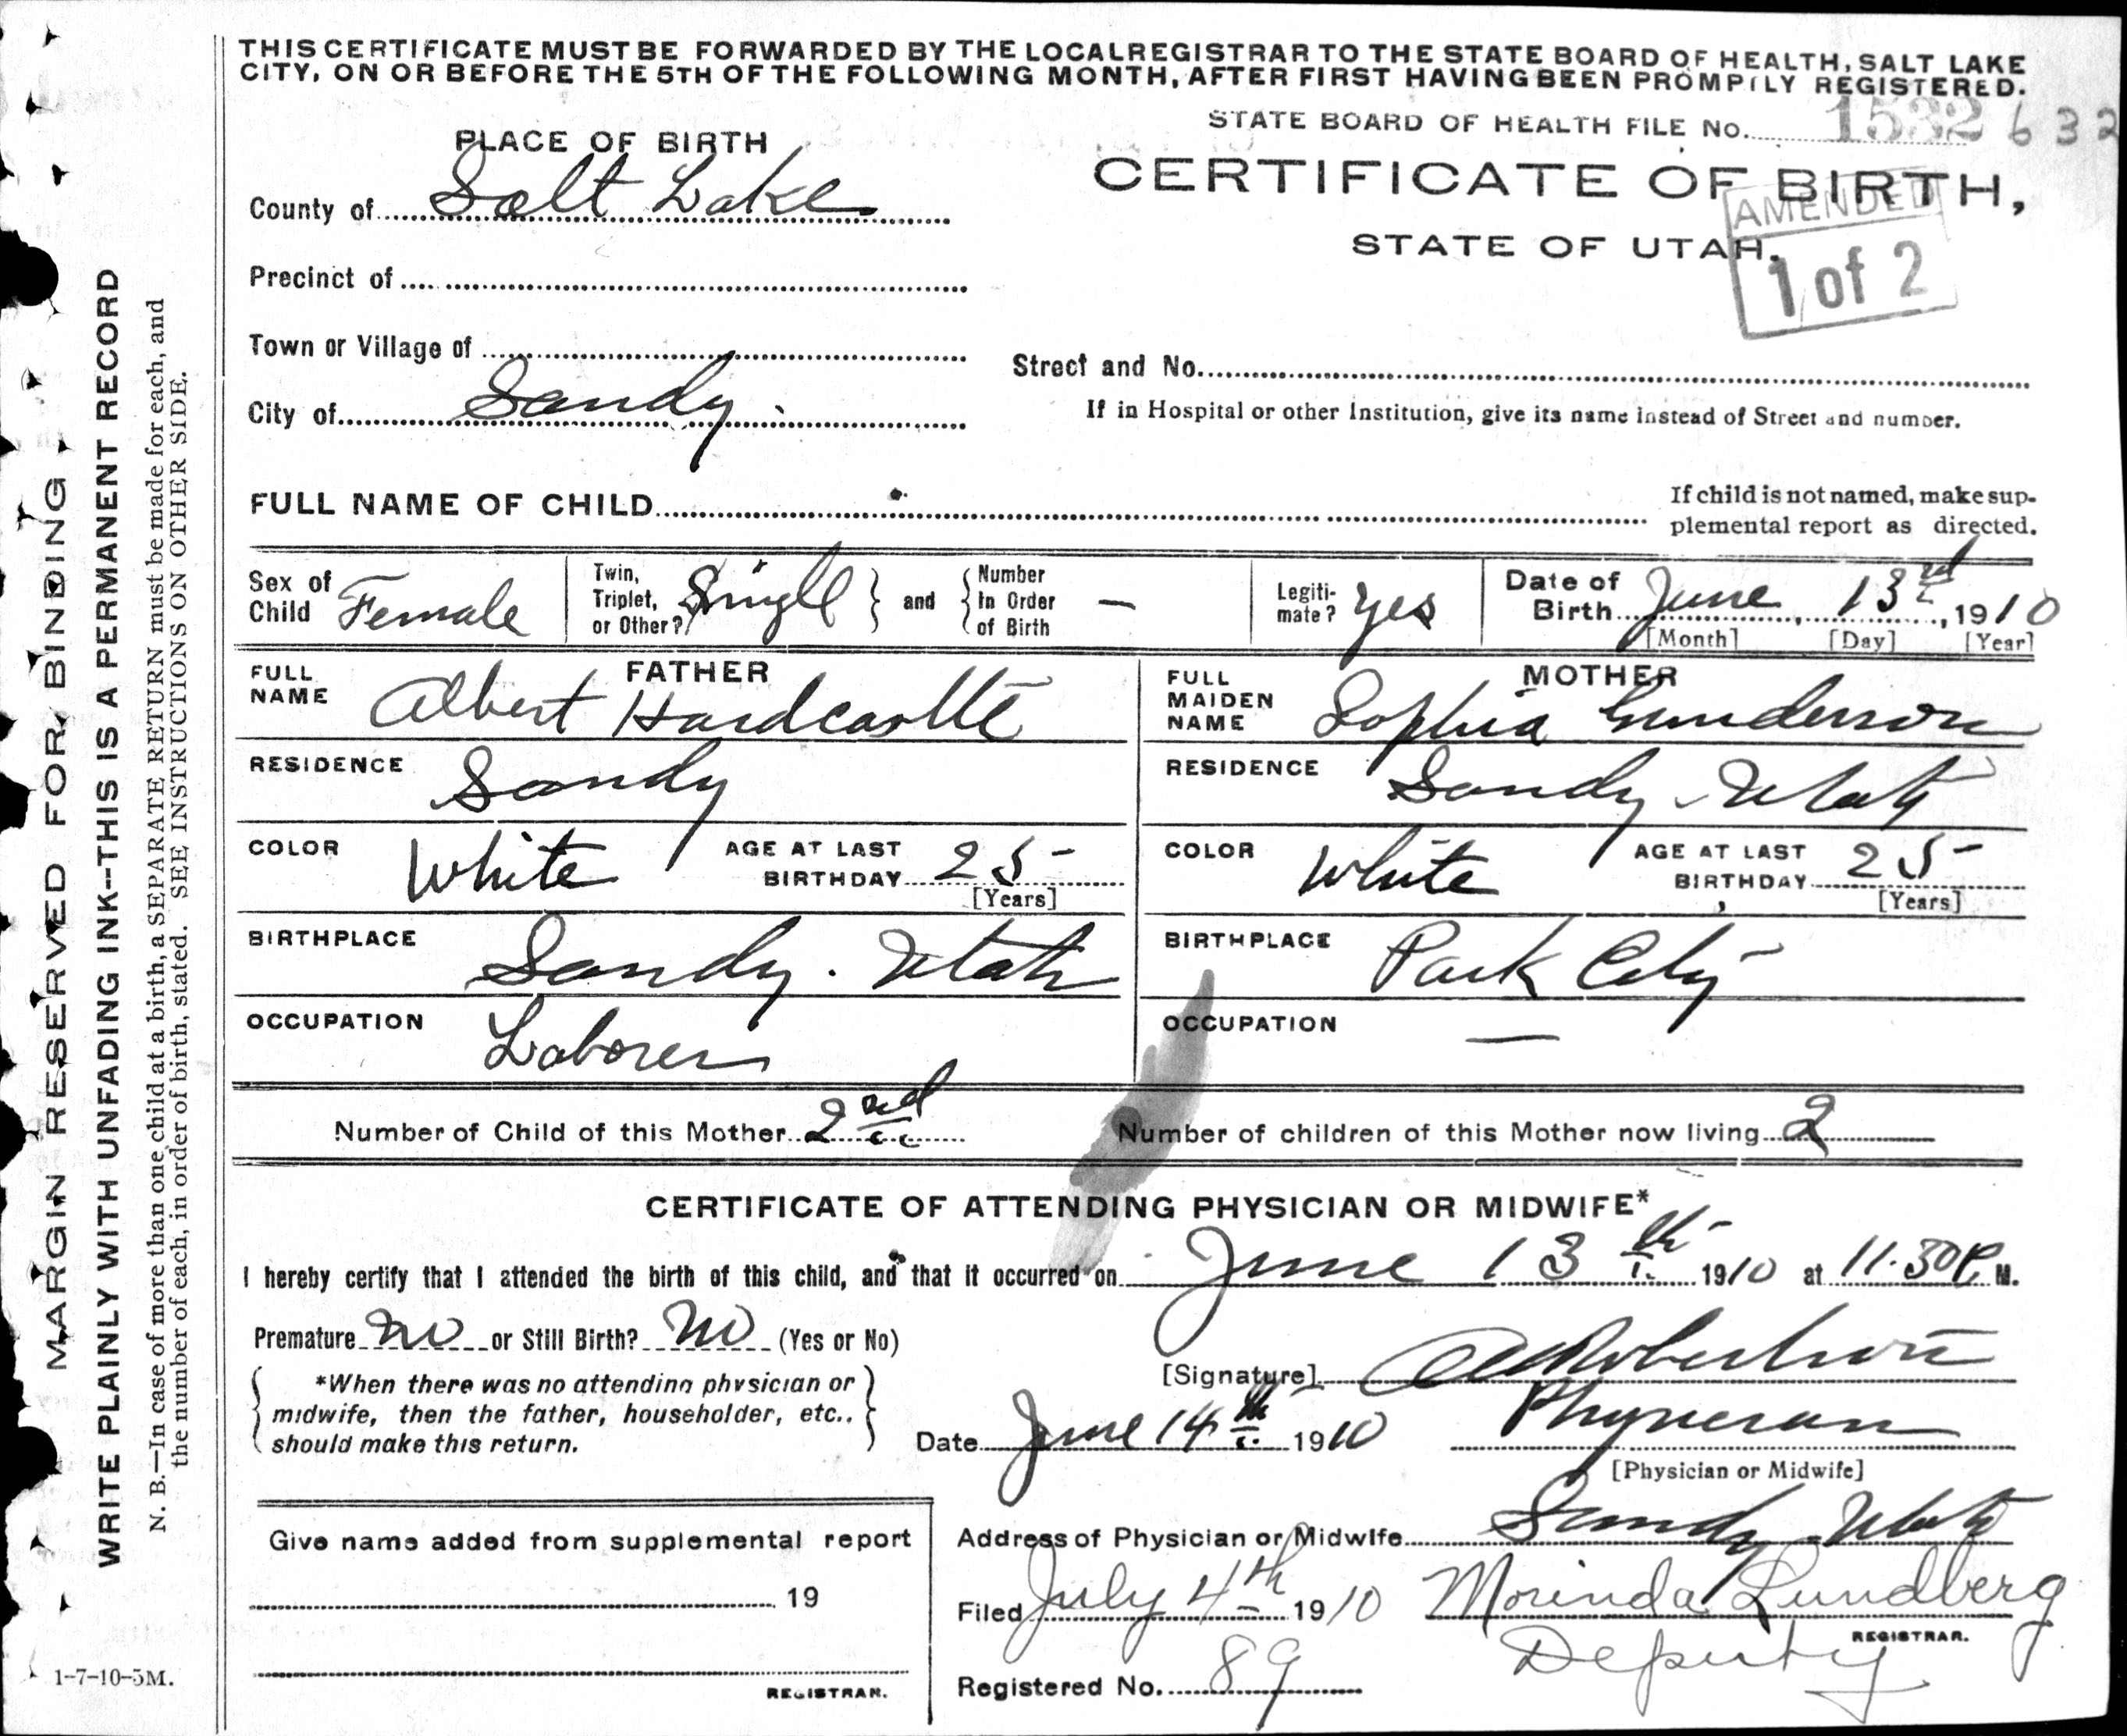 THIS CERTIFICATE MUST BE FORWARDED BY THE LOCAL REGISTRAR TO THE STATE BOARD OF HEALTH, SALT LAKE
CITY, ON OR BEFORE THE 5TH OF THE FOLLOWING MONTH, AFTER FIRST HAVING BEEN PROMPTLY REGISTERED.
STATE BOARD OF HEALTH FILE No. 1532 632
PLACE OF BIRTH
CERTIFICATE OF BIRTH,
STATE OF UTAH.
AMENDED
1 of 2
County of Salt Lake
Precinct of
Town or Village of
Street and No.
City of Sandy
If in Hospital or other Institution, give its name instead of Street and number.
FULL NAME OF CHILD
If child is not named, make sup-
plemental report as directed.
Sex of Child Female
Twin, Triplet, or Other? Single and Number In Order of Birth —
Legiti-mate? Yes
Date of Birth June 13, 1910
[Month] [Day] [Year]
FATHER
FULL NAME Albert Hardcastle
RESIDENCE Sandy
COLOR White AGE AT LAST BIRTHDAY 25
[Years]
BIRTHPLACE Sandy. Utah
OCCUPATION Laborer
MOTHER
FULL MAIDEN NAME Sophia Gunderson
RESIDENCE Sandy Utah
COLOR White AGE AT LAST BIRTHDAY 25
[Years]
BIRTHPLACE Park City
OCCUPATION —
Number of Child of this Mother 2nd Number of children of this Mother now living 2
CERTIFICATE OF ATTENDING PHYSICIAN OR MIDWIFE*
I hereby certify that I attended the birth of this child, and that it occurred on June 13th 1910 at 11.30 P. M.
Premature no or Still Birth? no (Yes or No)
*When there was no attending physician or
midwife, then the father, householder, etc.,
should make this return.
[Signature] Robertson
Date June 14th 1910 Physician
[Physician or Midwife]
Give name added from supplemental report
19
REGISTRAR.
Address of Physician or Midwife Sandy Utah
Filed July 4th 1910 Morinda Lundberg
REGISTRAR.
Deputy
Registered No. 89
MARGIN RESERVED FOR BINDING
WRITE PLAINLY WITH UNFADING INK--THIS IS A PERMANENT RECORD
N. B.—In case of more than one child at a birth, a SEPARATE RETURN must be made for each, and
the number of each, in order of birth, stated. SEE INSTRUCTIONS ON OTHER SIDE.
1-7-10-5M.